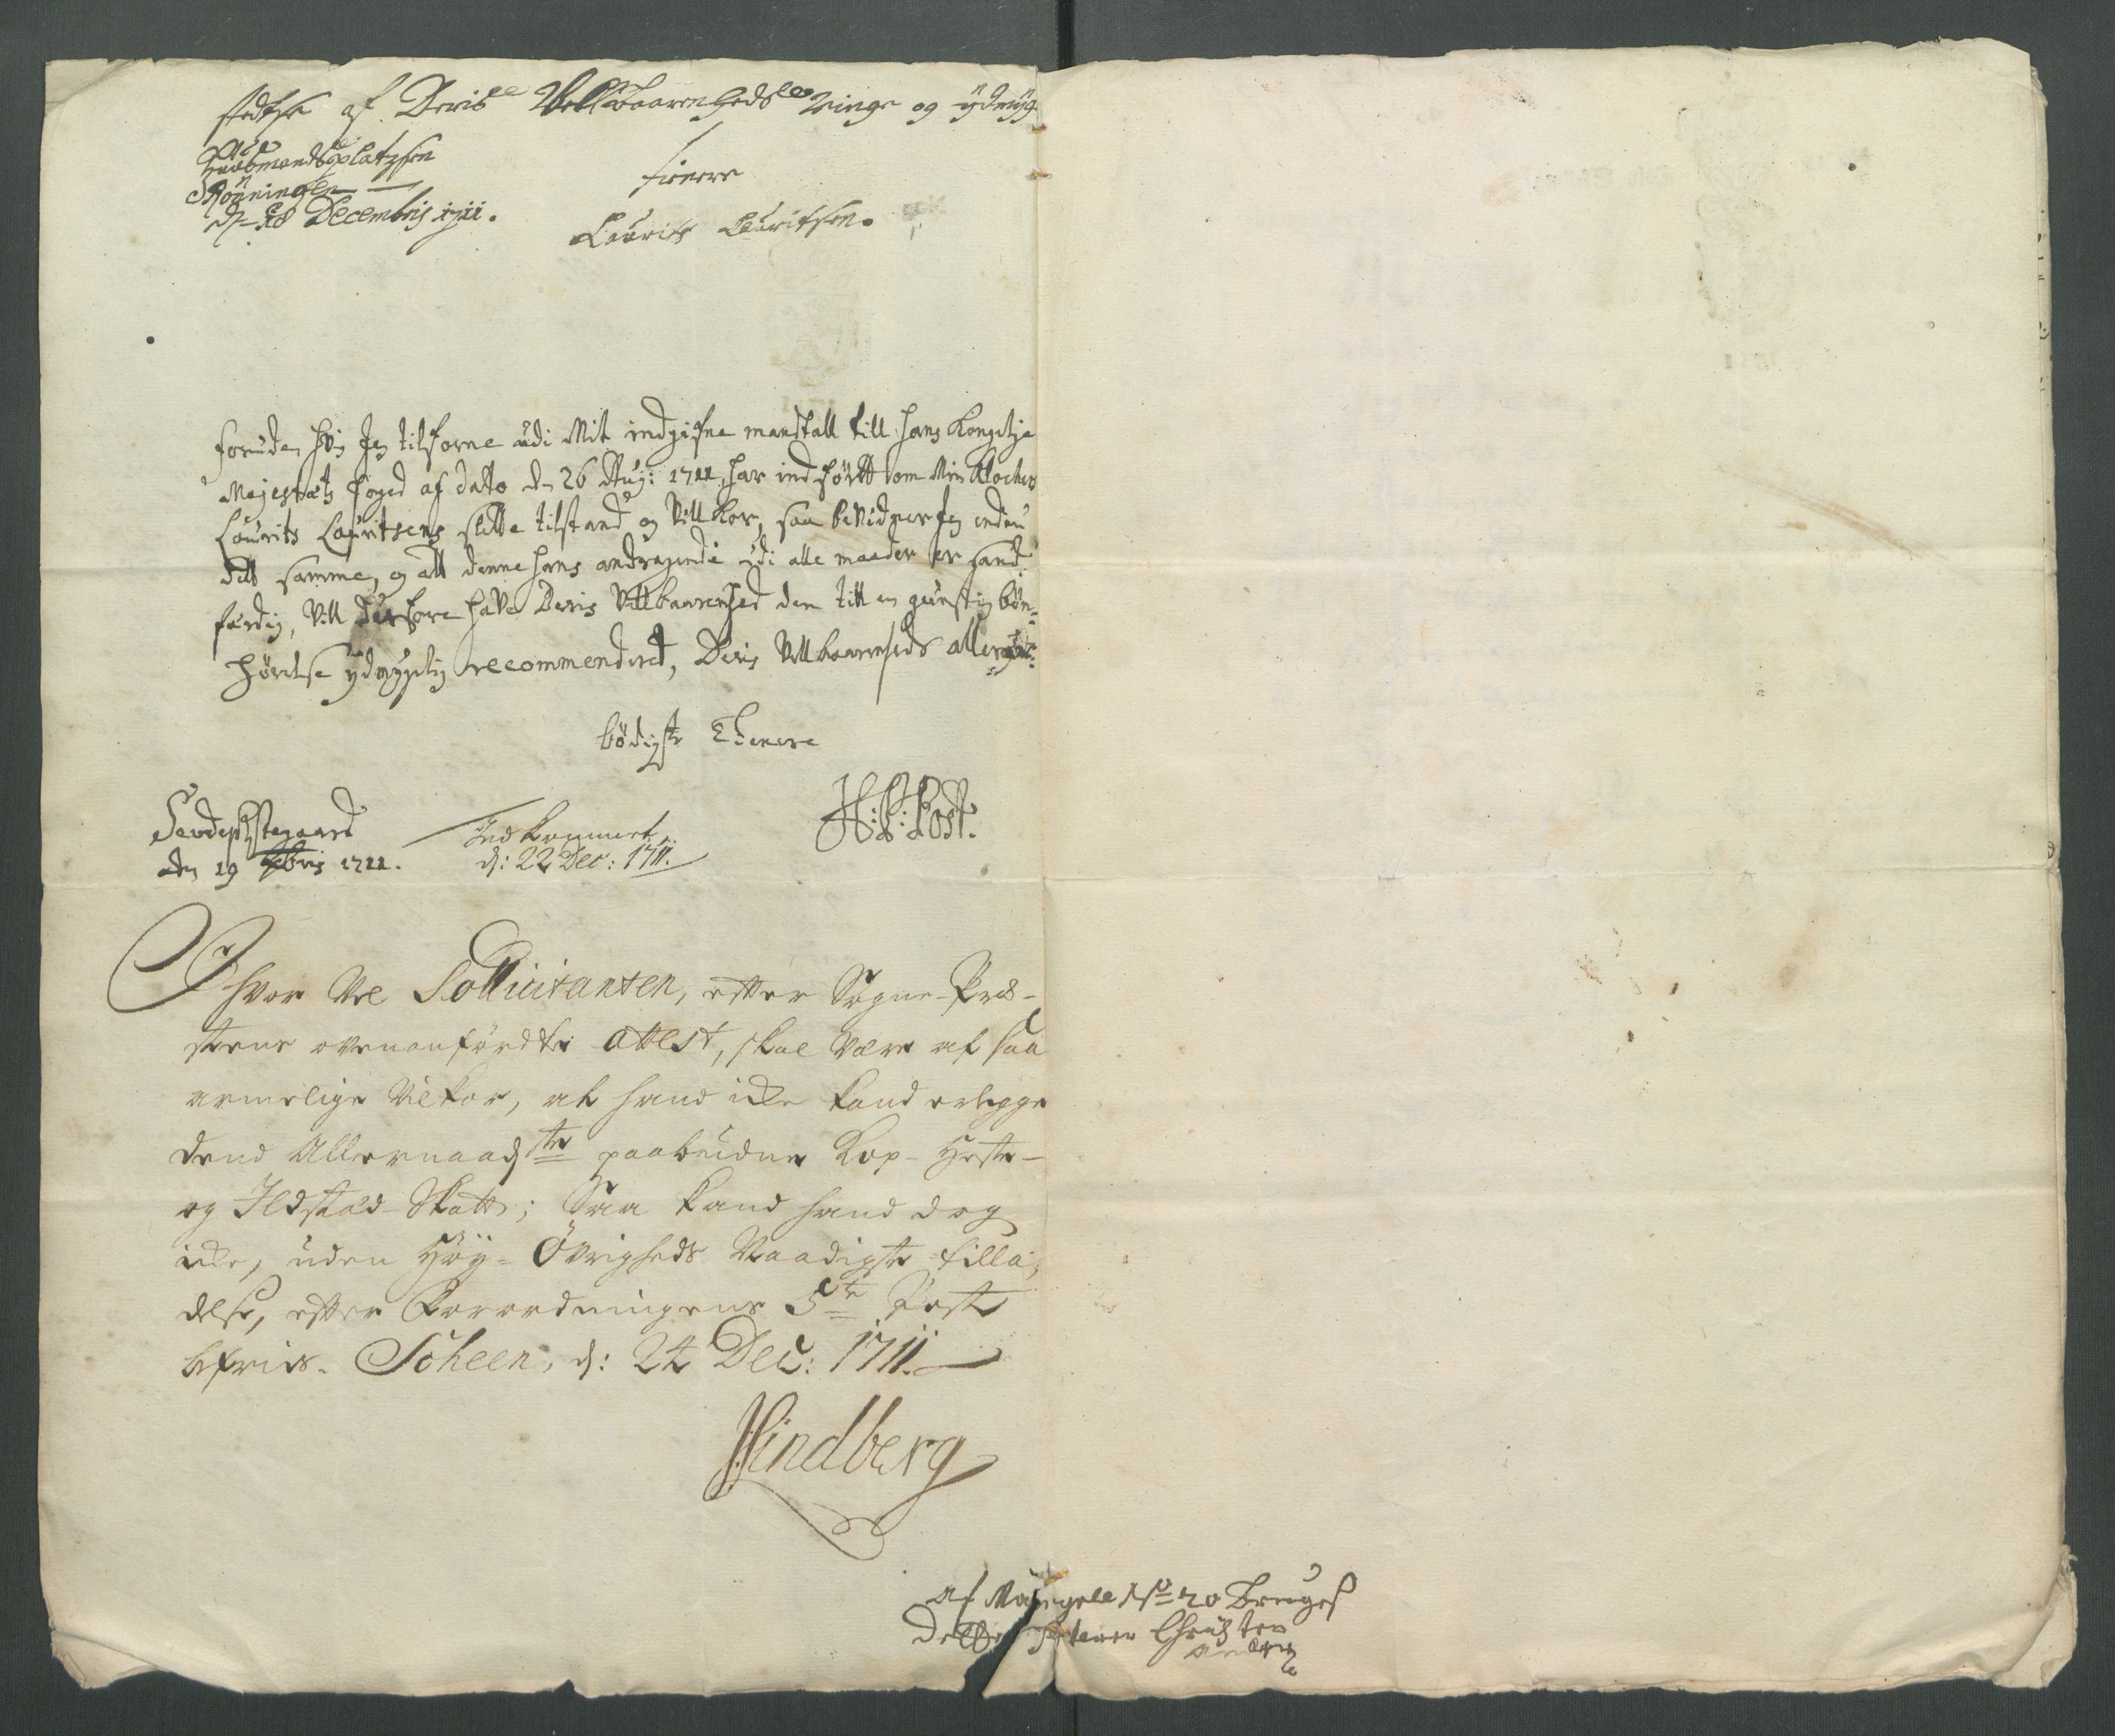 stedtze af Deris Vellbaarenheds ringe og ydmyg
Huusmandsplatzsen
Rönningen
d. 18 Decembris 1711.
tienere
Laurits Lauritsen.
foruden hvis Jeg tilforne udi Mit indgifne mandtall till hans Kongelige
Majestæts foged af dato den 26 Aug: 1711, har indförtt om Min Klocker
Lourits Louritsens slette tilstand og Villkor, saa bevidner Jeg endnu
dett samme, og att denne hans andragende udi alle maader er sand-
færdig, Vill derfore have Deris Vellbaarenhed den till en gunstig bön-
hörelse ydmygelig recommenderet, Deris Vellbaarenheds allerydr-
bödigste Thienere
H: P: Post.
Sevde Prestegaard
den 19 Xbris 1711.
Indkommet
d: 22 Dec: 1711.
Ihvor Vel Sollicitanten, efter Sogne-Præ-
stens ovenanfördte attest, skal være af saa
armelige Vilkor, at hand icke kand erlegge
dend Allernaadste paabudne Kop- Heste-
og Ildsted-Skatt; Saa kand hand dog
icke, uden Höy-Övrigheds Naadigste tilla-
delse, efter Forordningens 5te Post
befries. Scheen, d: 24 Dec: 1711.
Lindberg
af No 20 Bruges
Dette